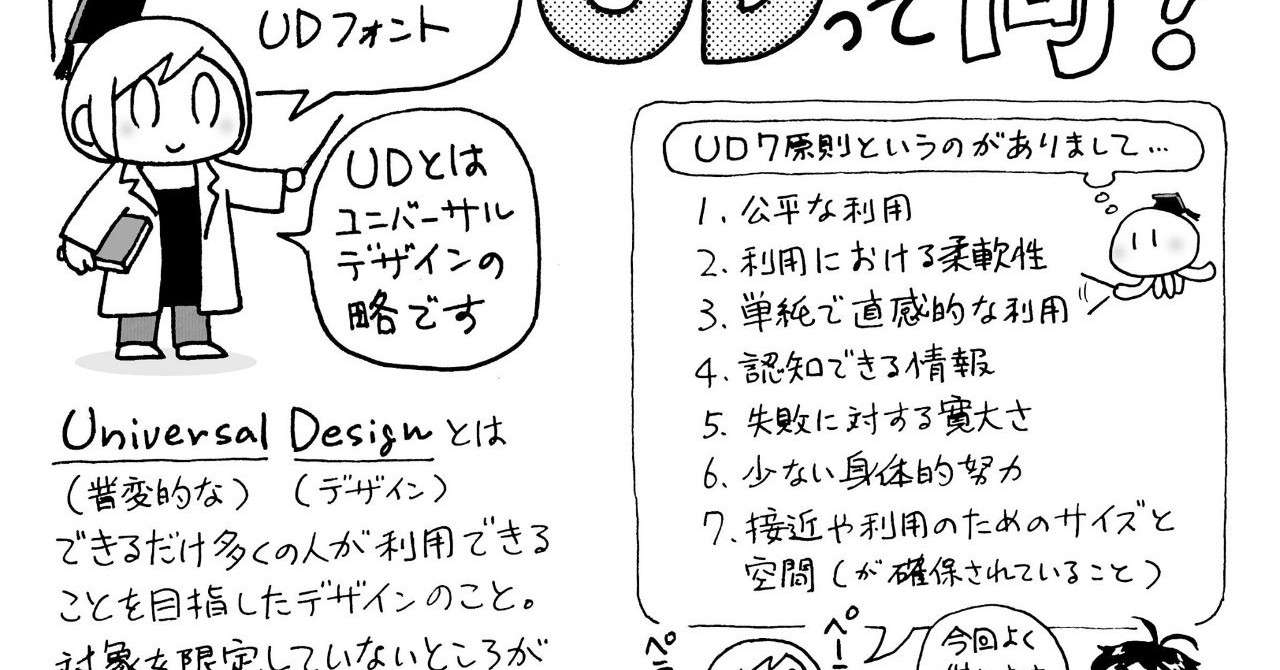 UDフォント
UDって何?
UDとは
ユニバーサル
デザインの
略です
Universal Designとは
(普変的な) (デザイン)
できるだけ多くの人が利用できる
ことを目指したデザインのこと。
対象を限定していないところが
UD7原則というのがありまして…
1. 公平な利用
2. 利用における柔軟性
3. 単純で直感的な利用
4. 認知できる情報
5. 失敗に対する寛大さ
6. 少ない身体的努力
7. 接近や利用のためのサイズと
空間(が確保されていること)
今回よく